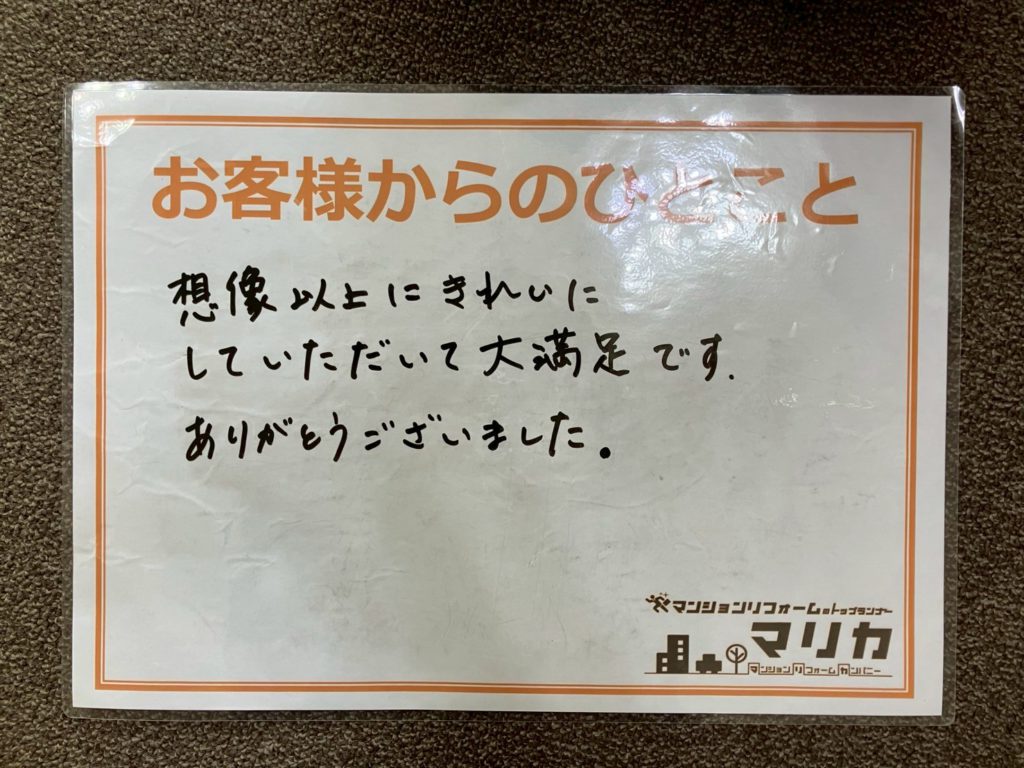 お客様からのひとこと
想像以上にきれいに
していただいて大満足です.
ありがとうございました。
マンションリフォームのトップランナー
マリカ
マンションリフォームカンパニー